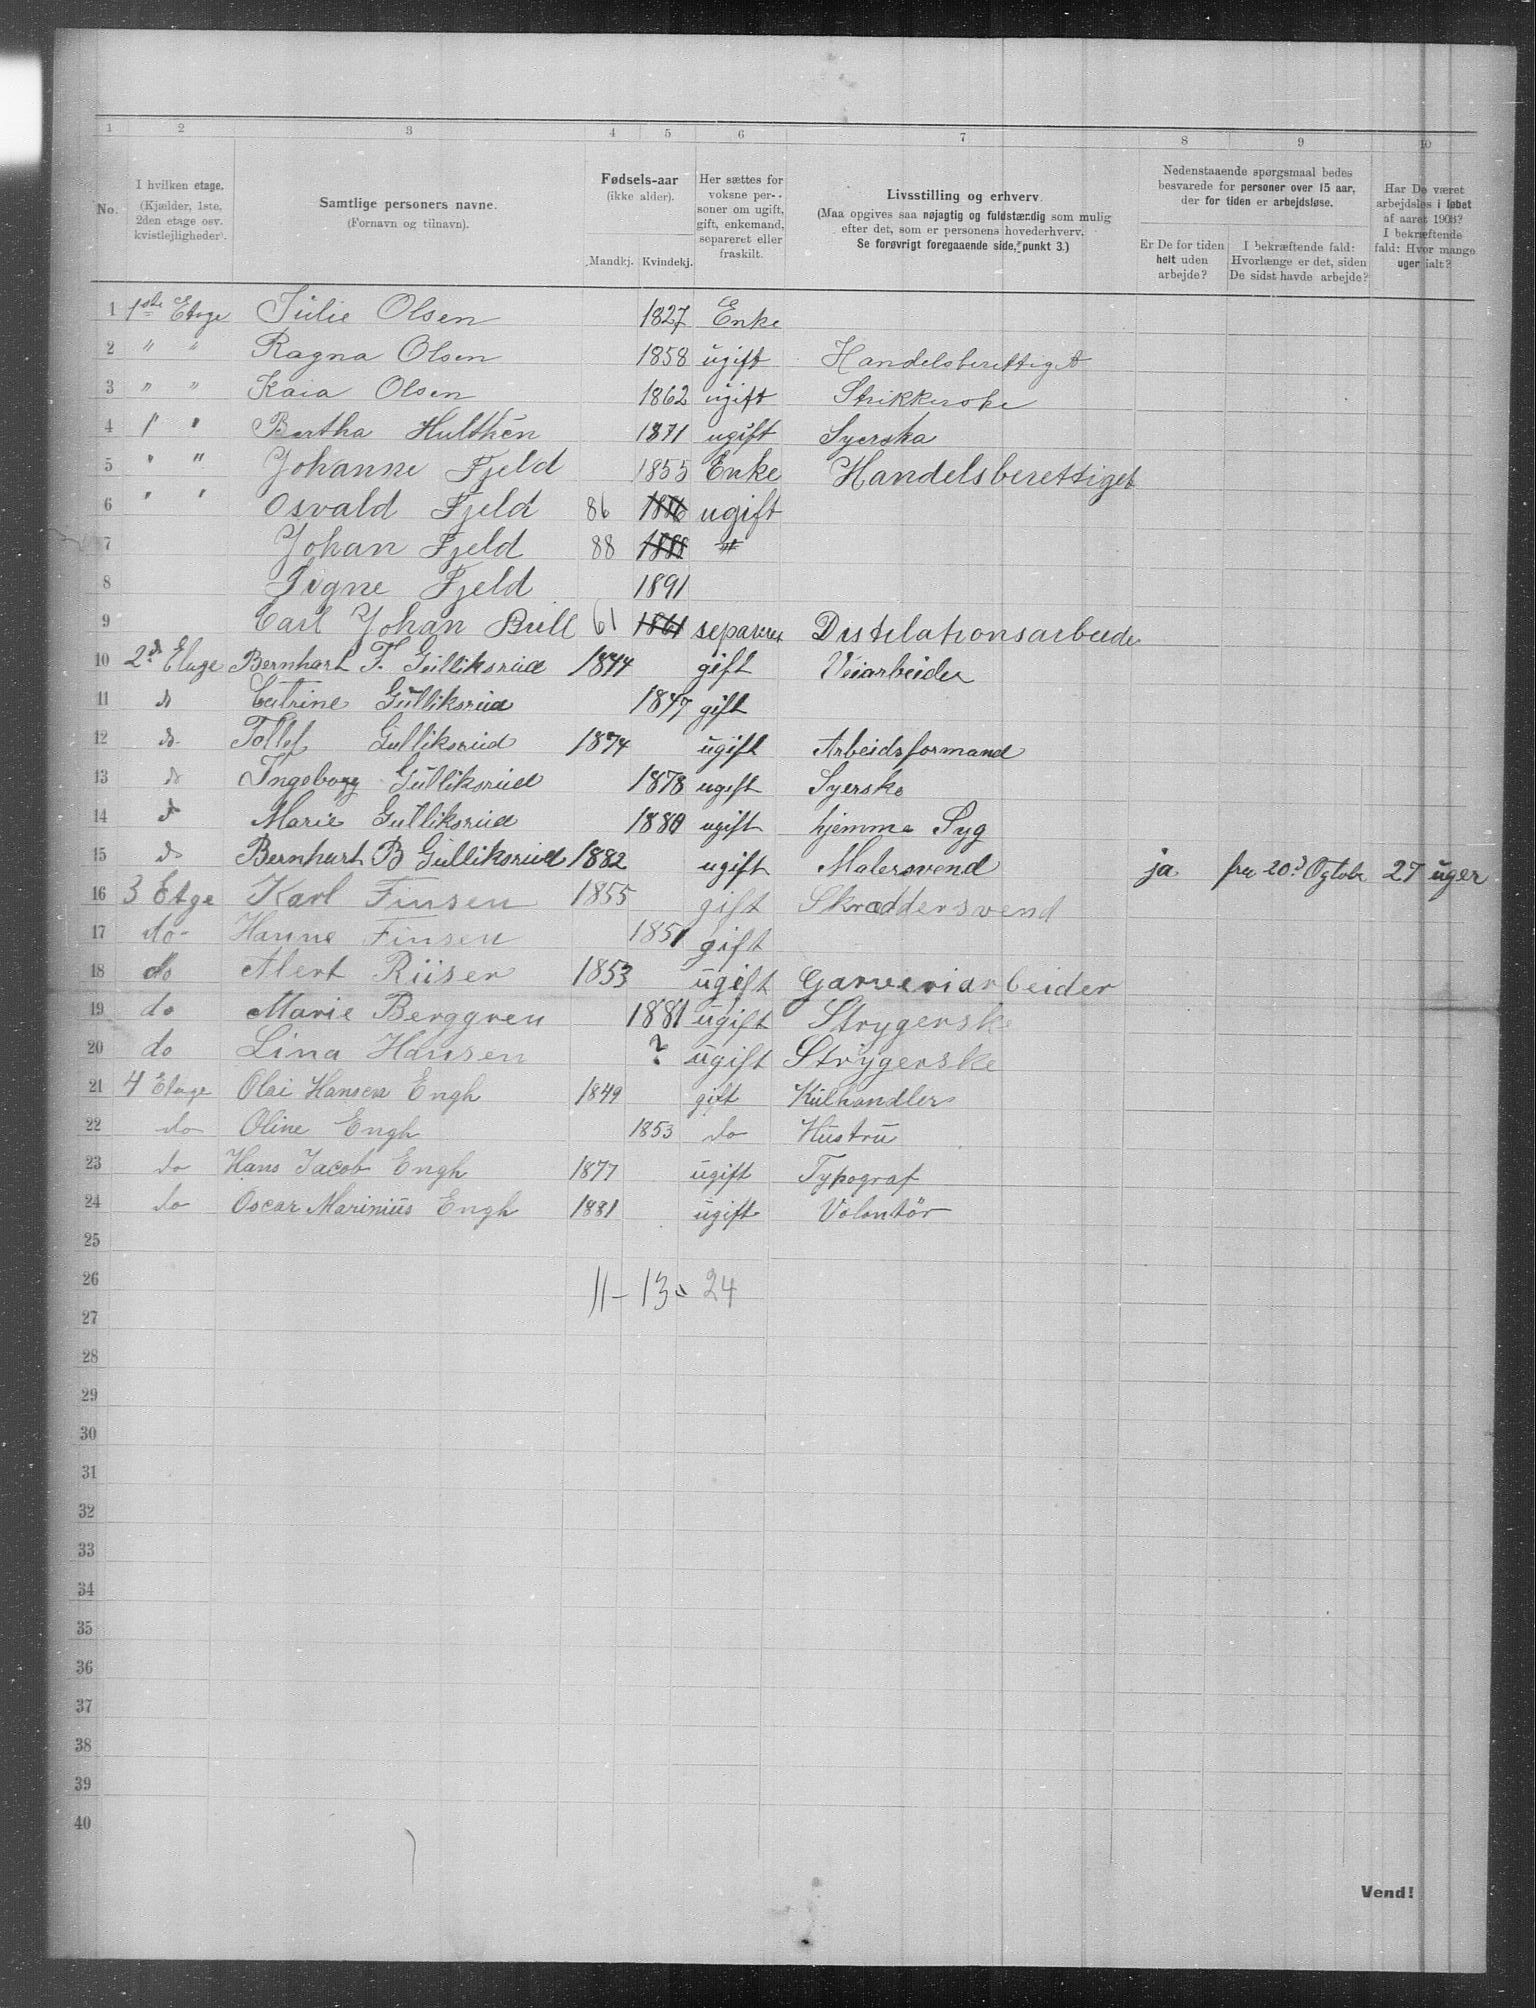 1 2 3 4 5 6 7 8 9 10
No.
I hvilken etage. (Kjælder, 1ste, 2den etage osv. kvistlejligheder).
Samtlige personers navne. (Fornavn og tilnavn).
Fødsels-aar (ikke alder). Mandkj. Kvindekj.
Her sættes for voksne personer om ugift, gift, enkemand, separeret eller fraskilt.
Livsstilling og erhverv. (Maa opgives saa nøjagtig og fuldstændig som mulig efter det, som er personens hovederhverv. Se forøvrigt foregaaende side, punkt 3.)
Nedenstaaende spørgsmaal bedes besvarede for personer over 15 aar, der for tiden er arbejdsløse.
Er De for tiden helt uden arbejde?
I bekræftende fald: Hvorlænge er det, siden De sidst havde arbejde?
Har De været arbejdsløs i løbet af aaret 1903? I bekræftende fald: Hvor mange uger ialt?
1 1ste Etage Julie Olsen 1827 Enke
2 " " Ragna Olsen 1858 ugift Handelsberettiget
3 " " Kaia Olsen 1862 ugift Strikkerske
4 " " Bertha Hulthén 1871 ugift Syerska
5 " " Johanne Fjeld 1855 Enke Handelsberettiget
6 " " Osvald Fjeld 86 1886 ugift
7 Johan Fjeld 88 1888 "
8 Signe Fjeld 1891
9 Carl Johan Brill 61 1861 separeret Destilationsarbeider
10 2d Etage Bernhart T. Gulliksrud 1844 gift Veiarbeider
11 do Catrine Gulliksrud 1847 gift
12 do Tollef Gulliksrud 1874 ugift Arbeidsformand
13 do Ingeborg Gulliksrud 1878 ugift Syerske
14 do Marie Gulliksrud 1880 ugift hjemme Syg
15 do Bernhart B Gulliksrud 1882 ugift Malersvend ja fra 20d Ogtobr 27 uger
16 3 Etge Karl Finsen 1855 gift Skræddersvend
17 do Hanne Finsen 1851 gift
18 do Alert Riiser 1853 ugift Garveriarbeider
19 do Marie Berggren 1881 ugift Strygerske
20 do Lina Hansen ? ugift Strygerske
21 4 Etage Olai Hansen Engh 1849 gift Kulhandler
22 do Oline Engh 1853 do Hustru
23 do Hans Jacob Engh 1877 ugift Typograf
24 do Oscar Marinius Engh 1881 ugift Volontör
25
26 11 - 13 = 24
27
28
29
30
31
32
33
34
35
36
37
38
39
40
Vend!